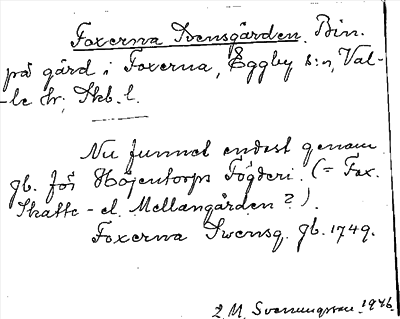 Foxerna Svensgården. Bin.
på gård i Foxerna, Eggby s:n, Val-
-le hr, Skb. l.
Nu funnet endast genom
gb. för Höjentorps Fögderi. (= Fox.
Skatte- el. Mellangården?).
Foxerna Swensg. gb. 1749.
L. M. Svenungsson 1946.